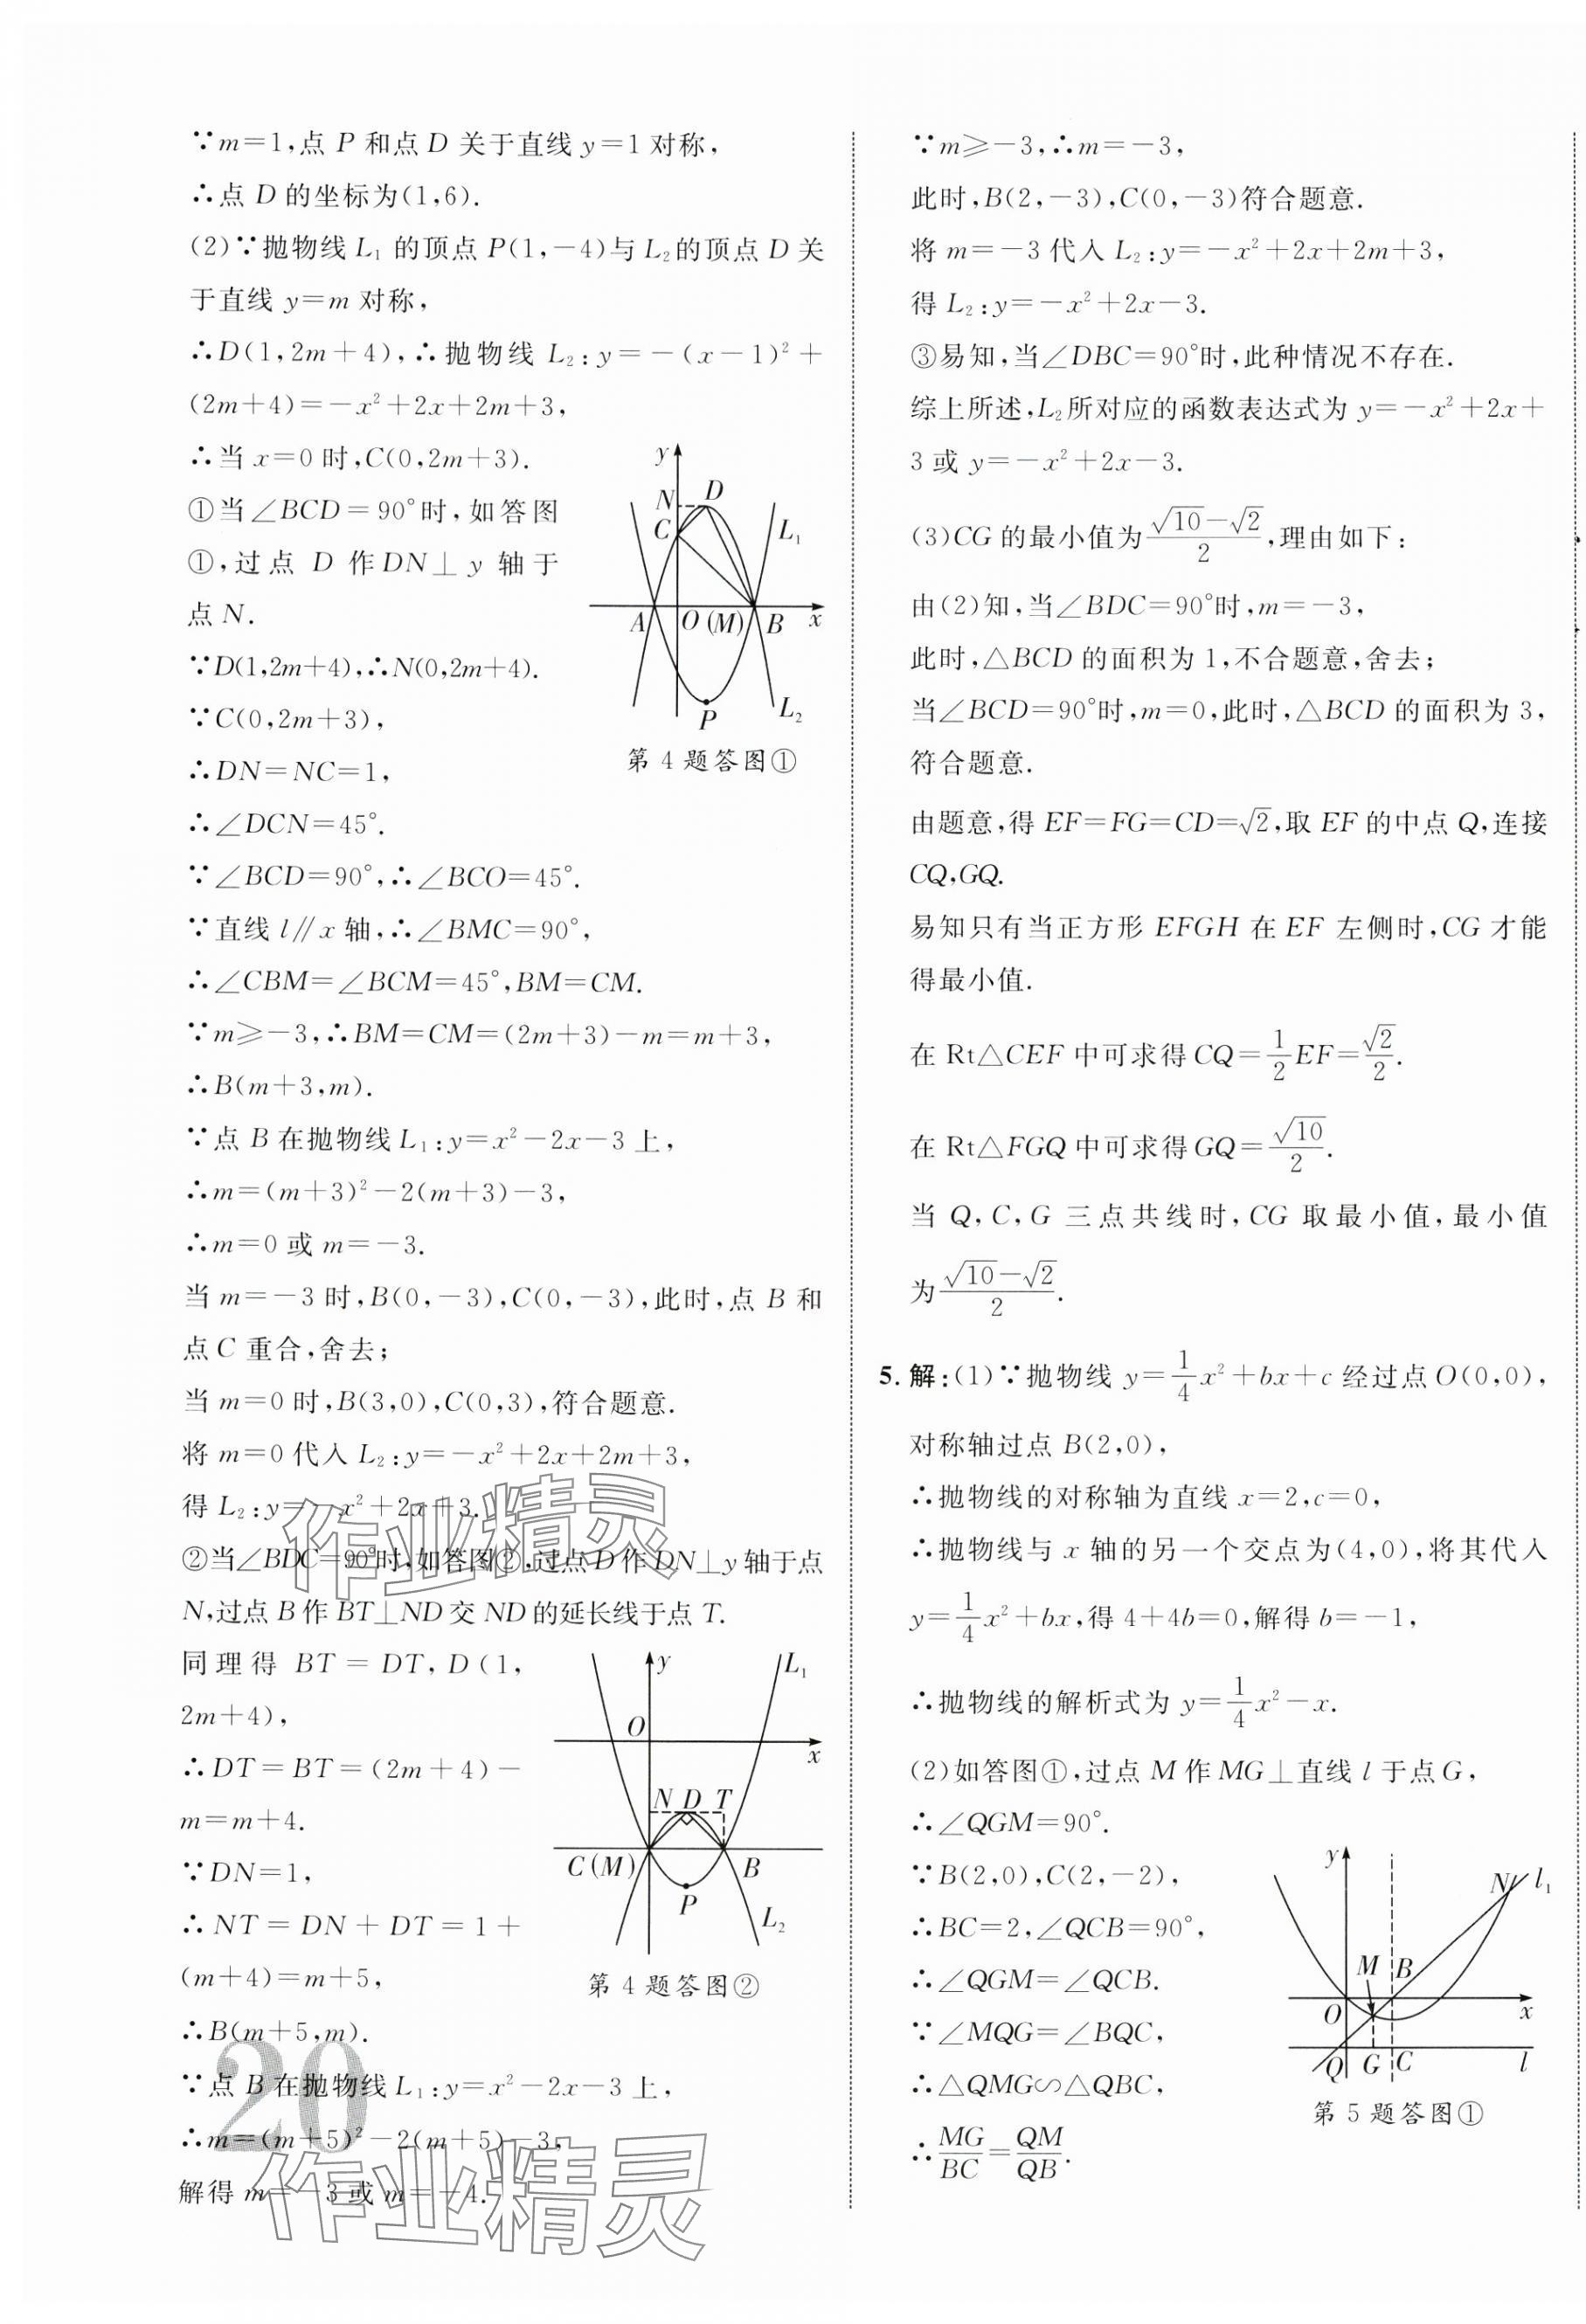 ∵m=1,点 P 和点 D 关于直线 y=1 对称,
∴点 D 的坐标为(1,6).
(2)∵抛物线 L₁ 的顶点 P(1,-4)与 L₂的顶点 D 关
于直线 y=m 对称,
∴D(1,2m+4),∴抛物线 L₂:y=-(x-1)²+
(2m+4)=-x²+2x+2m+3,
∴当 x=0 时,C(0,2m+3).
①当∠BCD=90°时,如答图
①,过点 D 作DN⊥y 轴于
点 N.
∵D(1,2m+4),∴N(0,2m+4).
∵C(0,2m+3),
∴DN=NC=1,
∴∠DCN=45°.
y
N
D
C
L₁
A
O
(M)
B
x
P
L₂
第 4 题答图①
∵∠BCD=90°,∴∠BCO=45°.
∵直线 l∥x 轴,∴∠BMC=90°,
∴∠CBM=∠BCM=45°,BM=CM.
∵m≥-3,∴BM=CM=(2m+3)-m=m+3,
∴B(m+3,m).
∵点 B 在抛物线L₁:y=x²-2x-3 上,
∴m=(m+3)²-2(m+3)-3,
∴m=0 或 m=-3.
当 m=-3 时,B(0,-3),C(0,-3),此时,点 B 和
点 C 重合,舍去;
当 m=0 时,B(3,0),C(0,3),符合题意.
将 m=0 代入 L₂:y=-x²+2x+2m+3,
得 L₂:y=-x²+2x+3.
②当∠BDC=90°时,如答图②,过点D作DN⊥y轴于点
N,过点 B 作 BT⊥ND交 ND的延长线于点 T.
同理得 BT=DT,D(1,
2m+4),
∴DT=BT=(2m+4)-
m=m+4.
∵DN=1,
∴NT=DN+DT=1+
(m+4)=m+5,
y
L₁
O
x
N
D
T
C(M)
B
P
L₂
第 4 题答图②
∴B(m+5,m).
∵点 B 在抛物线L₁:y=x²-2x-3 上,
∴m=(m+5)²-2(m+5)-3,
解得 m=-3 或 m=-4.
20
作业精灵
作业精灵
∵m≥-3,∴m=-3,
此时,B(2,-3),C(0,-3)符合题意.
将 m=-3 代入 L₂:y=-x²+2x+2m+3,
得 L₂:y=-x²+2x-3.
③易知,当∠DBC=90°时,此种情况不存在.
综上所述,L₂所对应的函数表达式为 y=-x²+2x+
3 或 y=-x²+2x-3.
(3)CG 的最小值为(√10-√2)/2,理由如下:
由(2)知,当∠BDC=90°时,m=-3,
此时,△BCD 的面积为 1,不合题意,舍去;
当∠BCD=90°时,m=0,此时,△BCD 的面积为 3,
符合题意.
由题意,得 EF=FG=CD=√2,取 EF 的中点 Q,连接
CQ,GQ.
易知只有当正方形 EFGH 在 EF 左侧时,CG 才能
得最小值.
在 Rt△CEF 中可求得CQ=1/2 EF=√2/2.
在 Rt△FGQ 中可求得GQ=√10/2.
当 Q,C,G 三点共线时,CG 取最小值,最小值
为(√10-√2)/2.
5. 解:(1)∵抛物线 y=1/4 x²+bx+c 经过点O(0,0),
对称轴过点 B(2,0),
∴抛物线的对称轴为直线 x=2,c=0,
∴抛物线与 x 轴的另一个交点为(4,0),将其代入
y=1/4 x²+bx,得 4+4b=0,解得 b=-1,
∴抛物线的解析式为 y=1/4 x²-x.
(2)如答图①,过点 M 作 MG⊥直线 l 于点G,
∴∠QGM=90°.
∵B(2,0),C(2,-2),
∴BC=2,∠QCB=90°,
∴∠QGM=∠QCB.
∵∠MQG=∠BQC,
∴△QMG∽△QBC,
∴MG/BC=QM/QB.
y
N
l₁
M
B
O
x
Q
G
C
l
第 5 题答图①